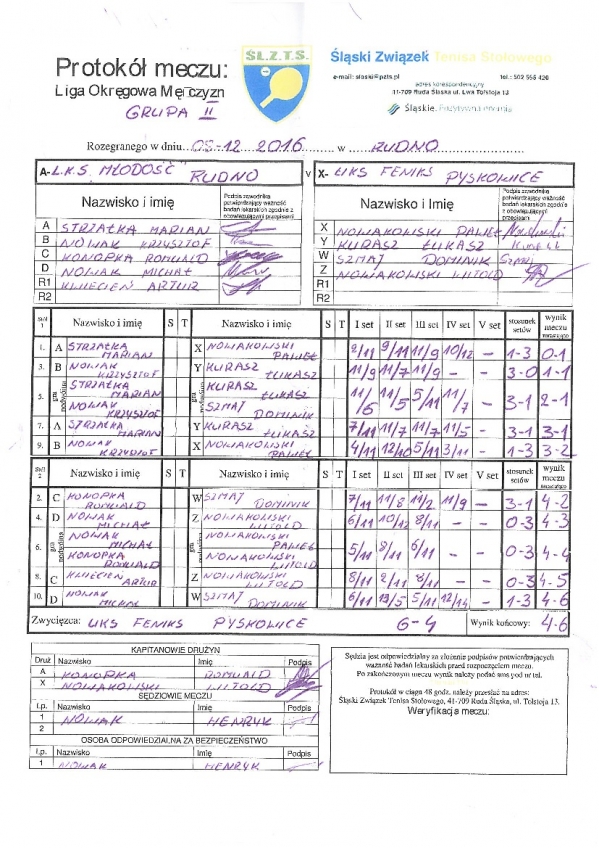 Protokół meczu:
Liga Okręgowa Mężczyzn
GRUPA II
ŚL.Z.T.S.
Śląski Związek Tenisa Stołowego
e-mail: slaski@pzts.pl tel.: 502 555 426
adres korespondencyjny
41-709 Ruda Śląska ul. Lwa Tołstoja 13
Śląskie. Pozytywna energia
Rozegranego w dniu 03-12 2016 w RUDNO
A- L.K.S. MŁODOŚĆ RUDNO V X- UKS FENIKS PYSKOWICE
Nazwisko i imię Podpis zawodnika potwierdzający ważność badań lekarskich zgodnie z obowiązującymi przepisami Nazwisko i Imię Podpis zawodnika potwierdzający ważność badań lekarskich zgodnie z obowiązującymi przepisami
A STRZAŁKA MARIAN X NOWAKOWSKI PAWEŁ
B NOWAK KRZYSZTOF Y KURASZ ŁUKASZ
C KONOPKA ROMUALD W SZMAJ DOMINIK
D NOWAK MICHAŁ Z NOWAKOWSKI WITOLD
R1 KWIECIEŃ ARTUR R1
R2 R2
Stół 1 Nazwisko i imię S T Nazwisko i imię S T I set II set III set IV set V set stosunek setów wynik meczu
1. A STRZAŁKA MARIAN X NOWAKOWSKI PAWEŁ 2/11 9/11 11/9 10/12 – 1-3 0-1
3. B NOWAK KRZYSZTOF Y KURASZ ŁUKASZ 11/9 11/7 11/9 - – 3-0 1-1
5. gra podwójna STRZAŁKA MARIAN NOWAK KRZYSZTOF gra podwójna KURASZ ŁUKASZ SZMAJ DOMINIK 11/6 11/5 5/11 11/7 – 3-1 2-1
7. A STRZAŁKA MARIAN Y KURASZ ŁUKASZ 7/11 11/7 11/7 11/5 – 3-1 3-1
9. B NOWAK KRZYSZTOF X NOWAKOWSKI PAWEŁ 4/11 12/10 5/11 3/11 – 1-3 3-2
Stół 2 Nazwisko i imię S T Nazwisko i imię S T I set II set III set IV set V set stosunek setów wynik meczu
2. C KONOPKA ROMUALD W SZMAJ DOMINIK 7/11 11/8 11/2 11/9 – 3-1 4-2
4. D NOWAK MICHAŁ Z NOWAKOWSKI WITOLD 6/11 10/12 8/11 - – 0-3 4-3
6. gra podwójna NOWAK MICHAŁ KONOPKA ROMUALD gra podwójna NOWAKOWSKI PAWEŁ NOWAKOWSKI WITOLD 5/11 8/11 6/11 - – 0-3 4-4
8. C KWIECIEŃ ARTUR Z NOWAKOWSKI WITOLD 8/11 2/11 8/11 - – 0-3 4-5
10. D NOWAK W SZMAJ DOMINIK 6/11 5/11 12/14 – 1-3 4-6
Zwycięzca: UKS FENIKS PYSKOWICE 6-4 Wynik końcowy: 4-6
KAPITANOWIE DRUŻYN
Druż Nazwisko Imię Podpis
A KONOPKA ROMUALD
X NOWAKOWSKI WITOLD
SĘDZIOWIE MECZU
l.p. Nazwisko Imię Podpis
1 NOWAK HENRYK
2
OSOBA ODPOWIEDZIALNA ZA BEZPIECZEŃSTWO
l.p. Nazwisko Imię Podpis
1 NOWAK HENRYK
Sędzia jest odpowiedzialny za złożenie podpisów potwierdzających
ważność badań lekarskich przed rozpoczęciem meczu.
Po zakończonym meczu wynik należy podać sms pod nr tel.
Protokół w ciągu 48 godz. należy przesłać na adres:
Śląski Związek Tenisa Stołowego, 41-709 Ruda Śląska, ul. Tołstoja 13.
Weryfikacja meczu: